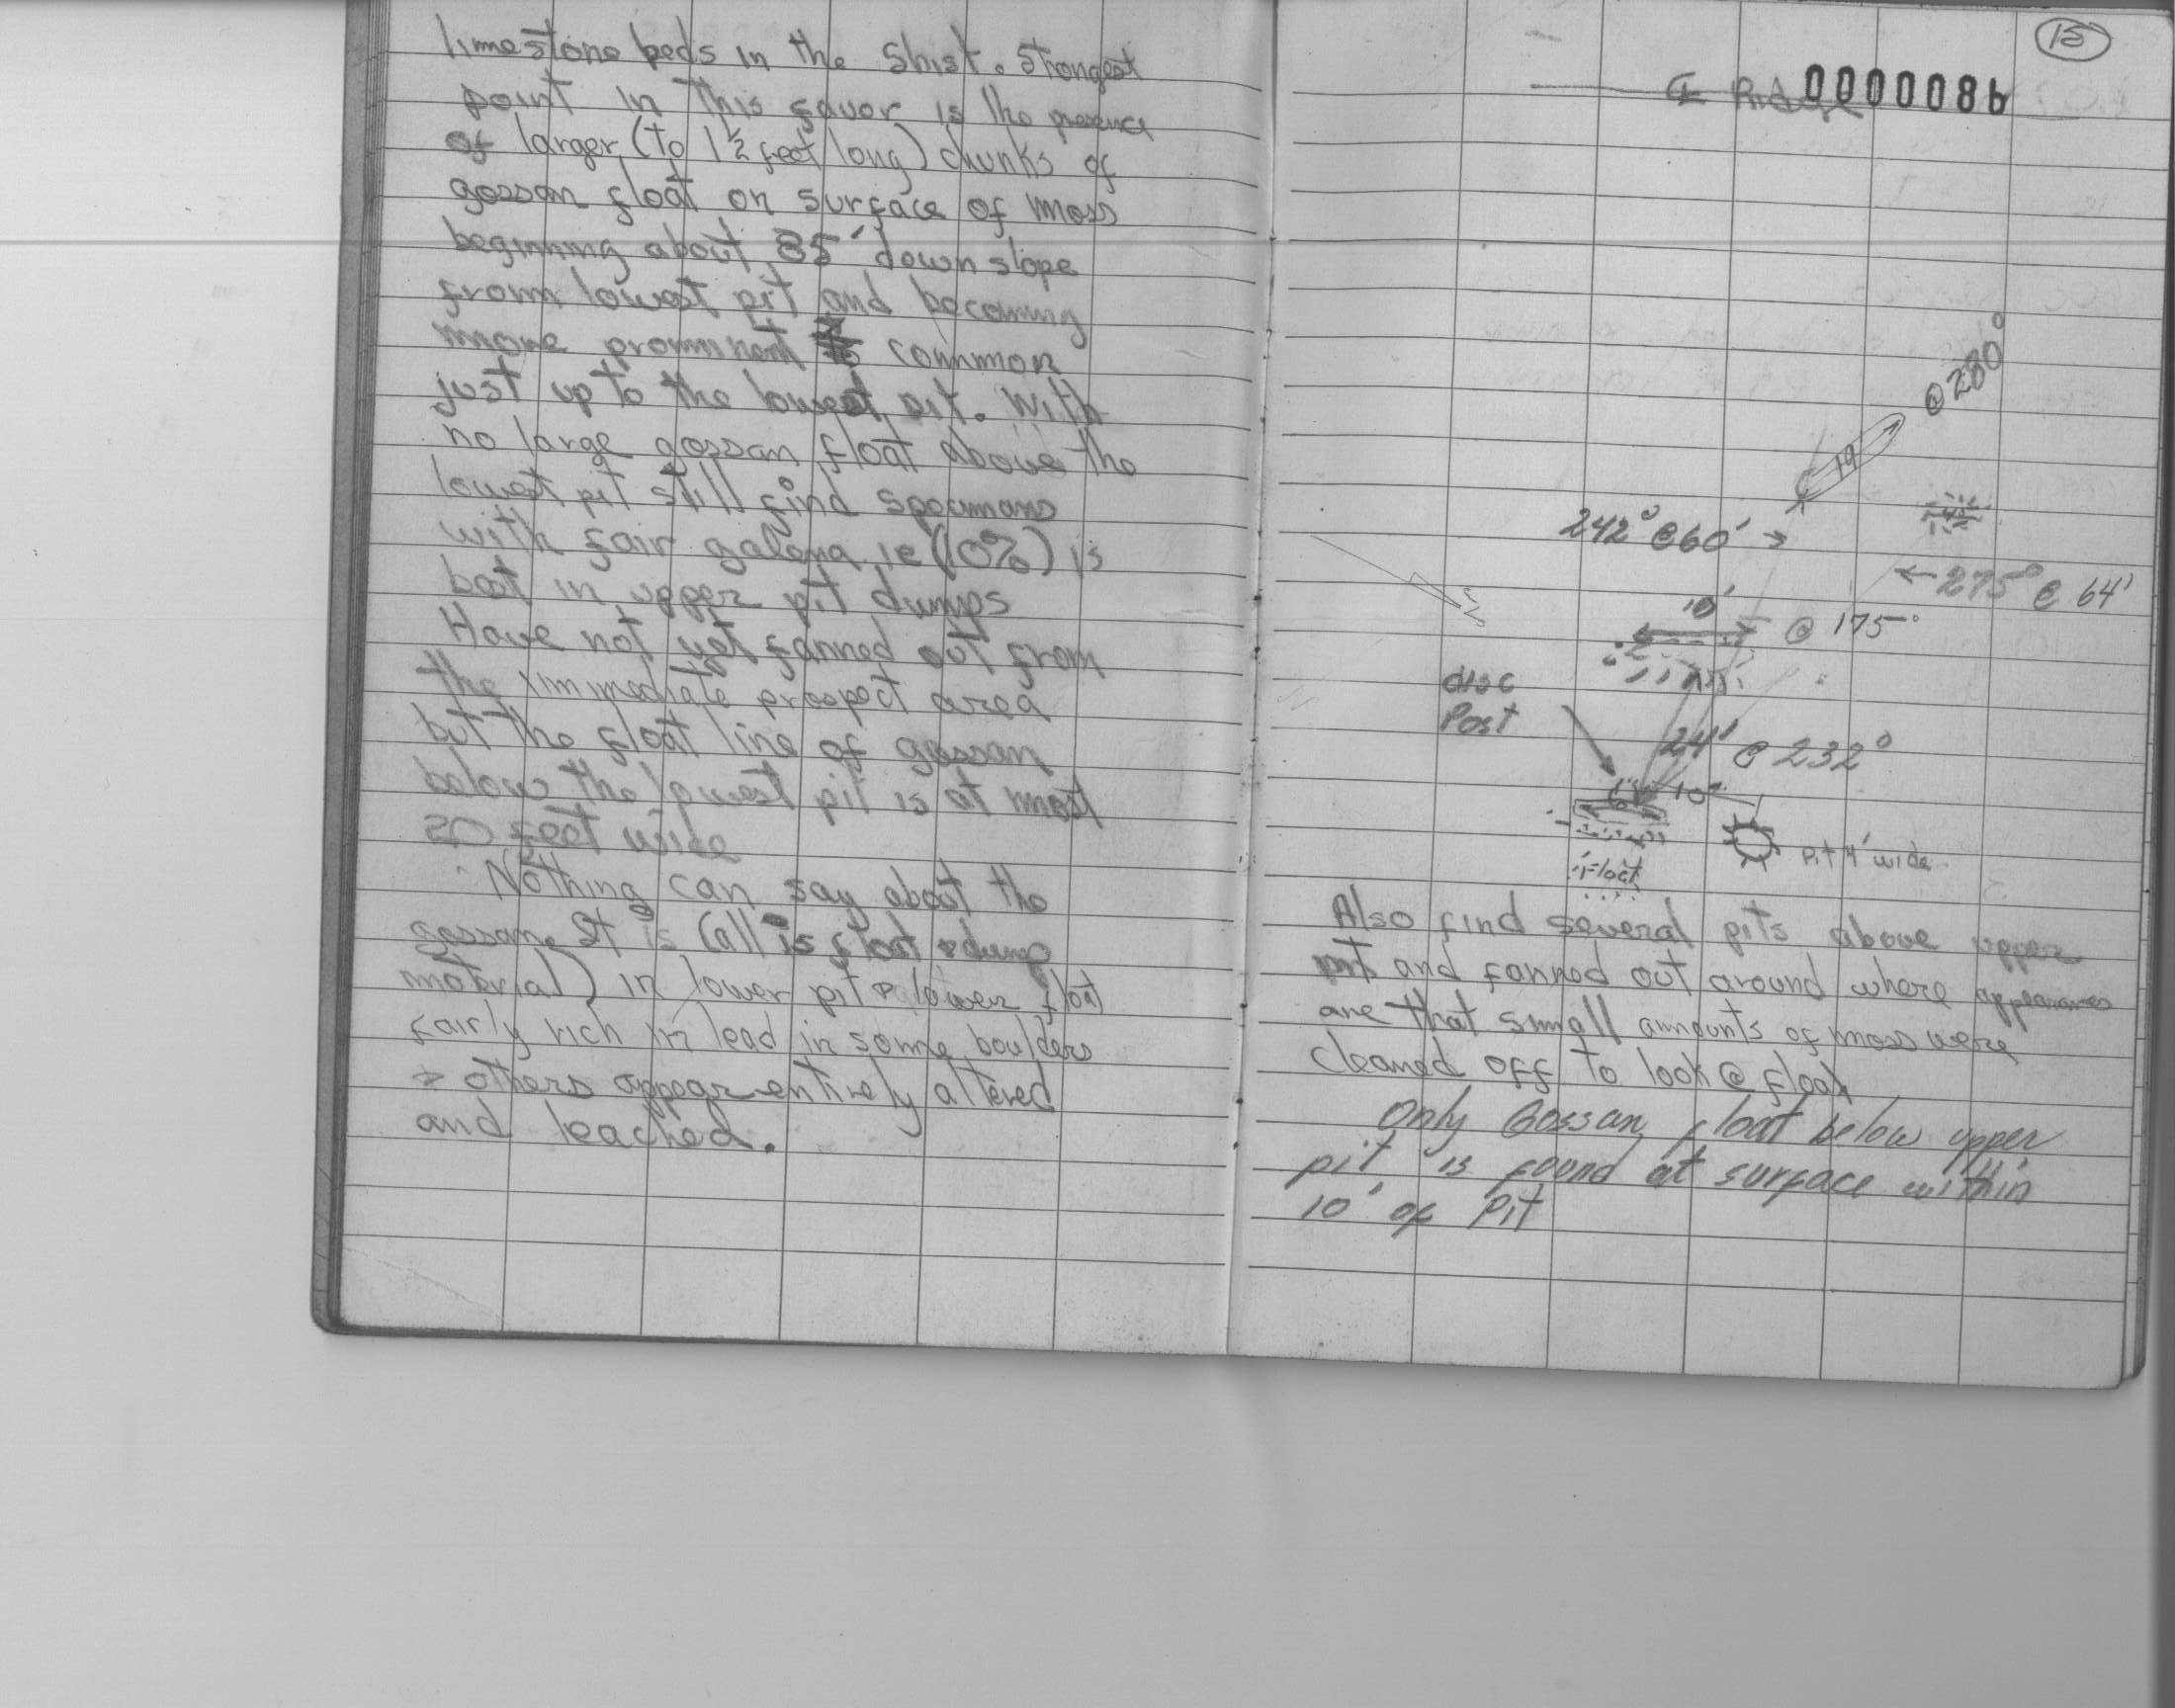 limestone beds in the Shist. Strongest
point in this favor is the presence
of larger (to 1½ feet long) chunks of
gossan float on surface of moss
beginning about 85' down slope
from lowest pit and becoming
more prominent common
just up to the lowest pit. With
no large gossan float above the
lowest pit still find specimans
with fair galena ie (10%) is
best in upper pit dumps
Have not yet fanned out from
the immediate prospect area
but the float line of gossan
below the lowest pit is at most
20 feet wide
Nothing can say about the
gossan. It is (all is float & dump
material) in lower pit & lower float
fairly rich in lead in some boulders
& others appear entirely altered
and leached.
15
℄ Ridge 0000086
@ 280°
19
242° @ 60' →
← 275° @ 64'
10'
@ 175°
disc
Post
24' @ 232°
10'
Pit 4' wide
Float
Also find several pits above upper
pit and fanned out around where appearances
are that small amounts of moss were
cleaned off to look @ float
Only Gossan float below upper
pit is found at surface within
10' of Pit